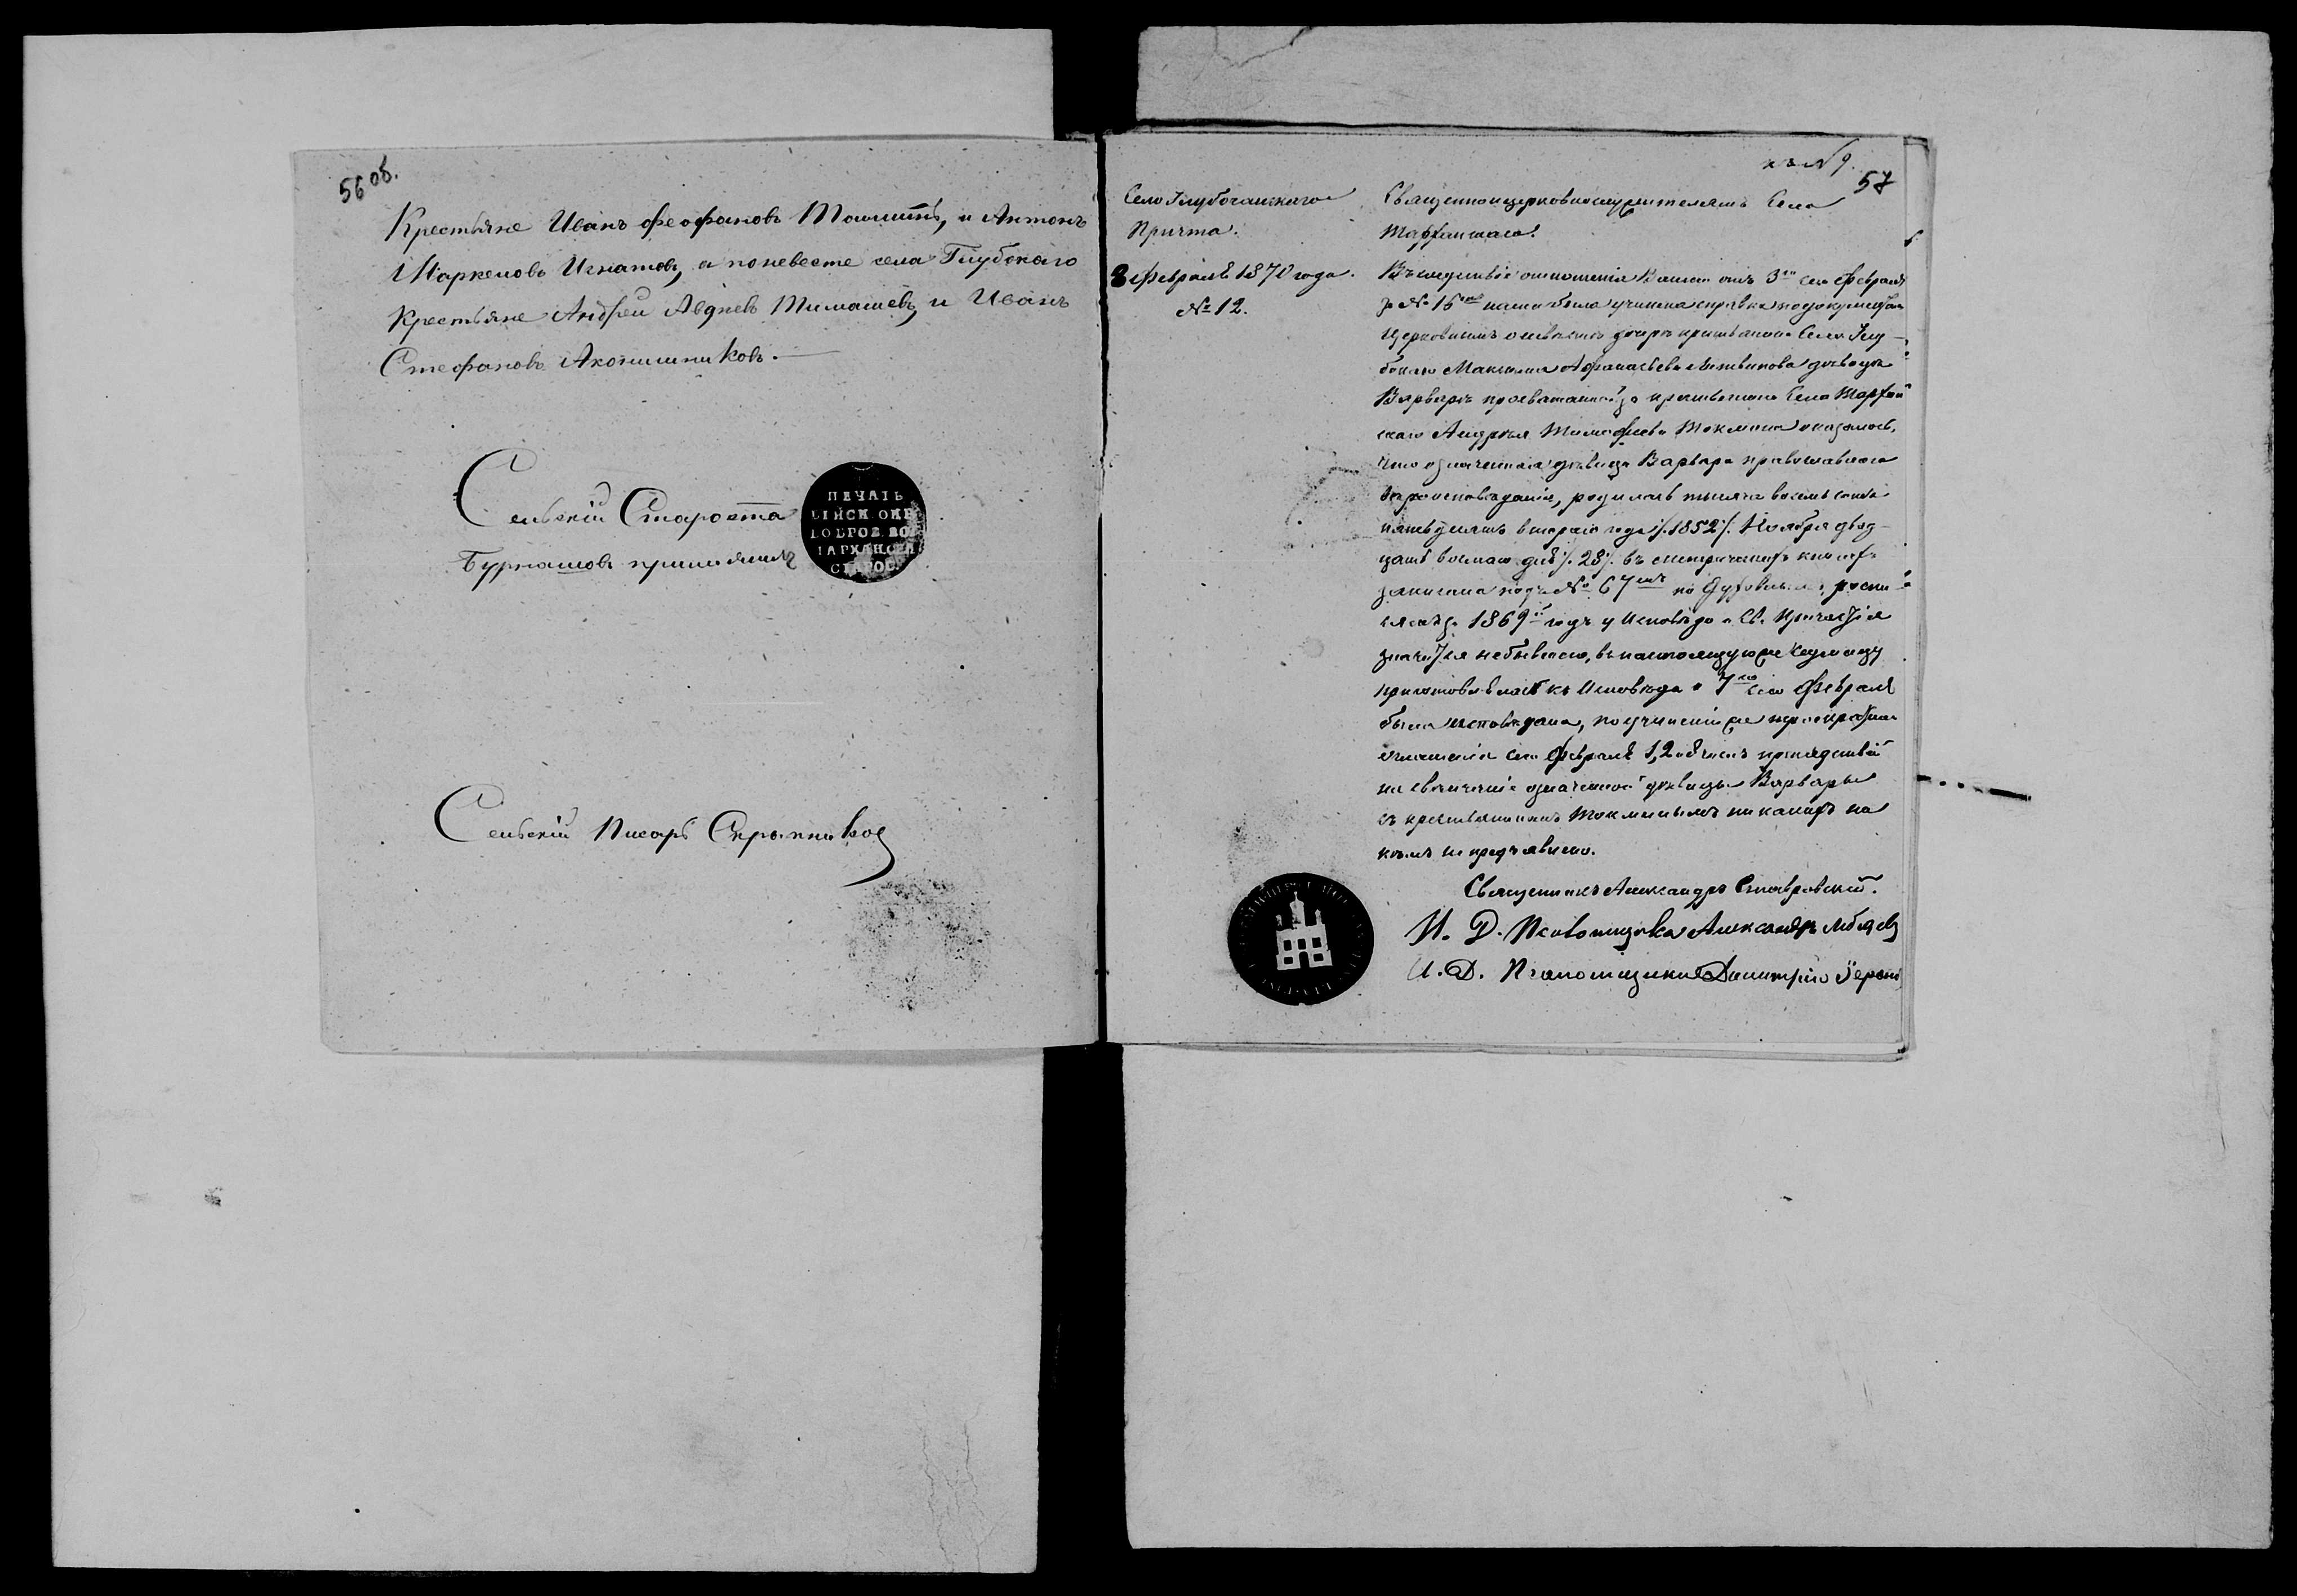 56 об.
Крестьяне Иванъ Феофановъ и Антонъ
Маркеловъ Игнатовъ, а по невесте села Глубокаго
Крестьяне Андрей Авднев Тимашевъ и Иванъ
Стефановъ
Сельскій Староста
Бурнашовъ
ПЕЧАТЬ
БІЙСК. ОКР
ТАРХАНСК
СТАРОС.
Сельскій Писарь Скрыпников
къ № 9.
57
Село Глубочанскаго
Причта.
8 февраля 1870 года.
№ 12.
Священноцерковнослужителямъ Села
Тарханскаго.
Въ следствіе отношенія Вашего отъ 3го сего Февраля
за № 16мъ нами была учинена справка по документамъ
Церковнымъ о невесте дочере крестьянина Села Глу-
бокаго Максима Афанасьева Литвинова девице
Варваре просватанной за крестьянина Села Тархан
скаго Андрея Тимофеева Токмина оказалось,
что означенная девица Варвара православнаго
вероисповеданія, родилась тысяча восемь сотъ
пятьдесятъ втораго года /.1852/. Ноября двад-
цать восьмаго дня /.28/. въ метрическихъ книгахъ
записана подъ № 67мъ по Духовнымъ роспи-
сямъ за 1869й годъ у Исповеди и Св. Причастія
значится небывшею, въ настоящую же Седмицу
приготовлялась къ Исповеди и 7го сего Февраля
была исповедана, по учиненіи же троекратнаго
оглашенія сего Февраля 1, 2 и 8 чиселъ препядствій
на венчаніе означенной девицы Варвары
съ крестьяниномъ Токминымъ никакихъ ни
кемъ не предъявлено.
Священникъ Александръ Ставровскій.
И. Д. Псаломщика Александръ
И. Д. Псаломщика Димитрій